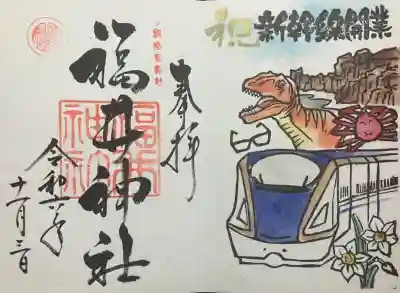 祝 新幹線開業
奉拝
福井神社
福井
神社
令和六年
十一月三日